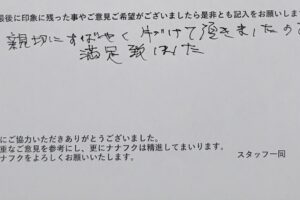 最後に印象に残った事やご意見ご希望がございましたら是非とも記入をお願いします
親切にすばやく片づけて頂きましたので
満足致しました
にご協力いただきありがとうございました。
重なご意見を参考にし、更にナナフクは精進してまいります。
ナナフクをよろしくお願いいたします。
スタッフ一同